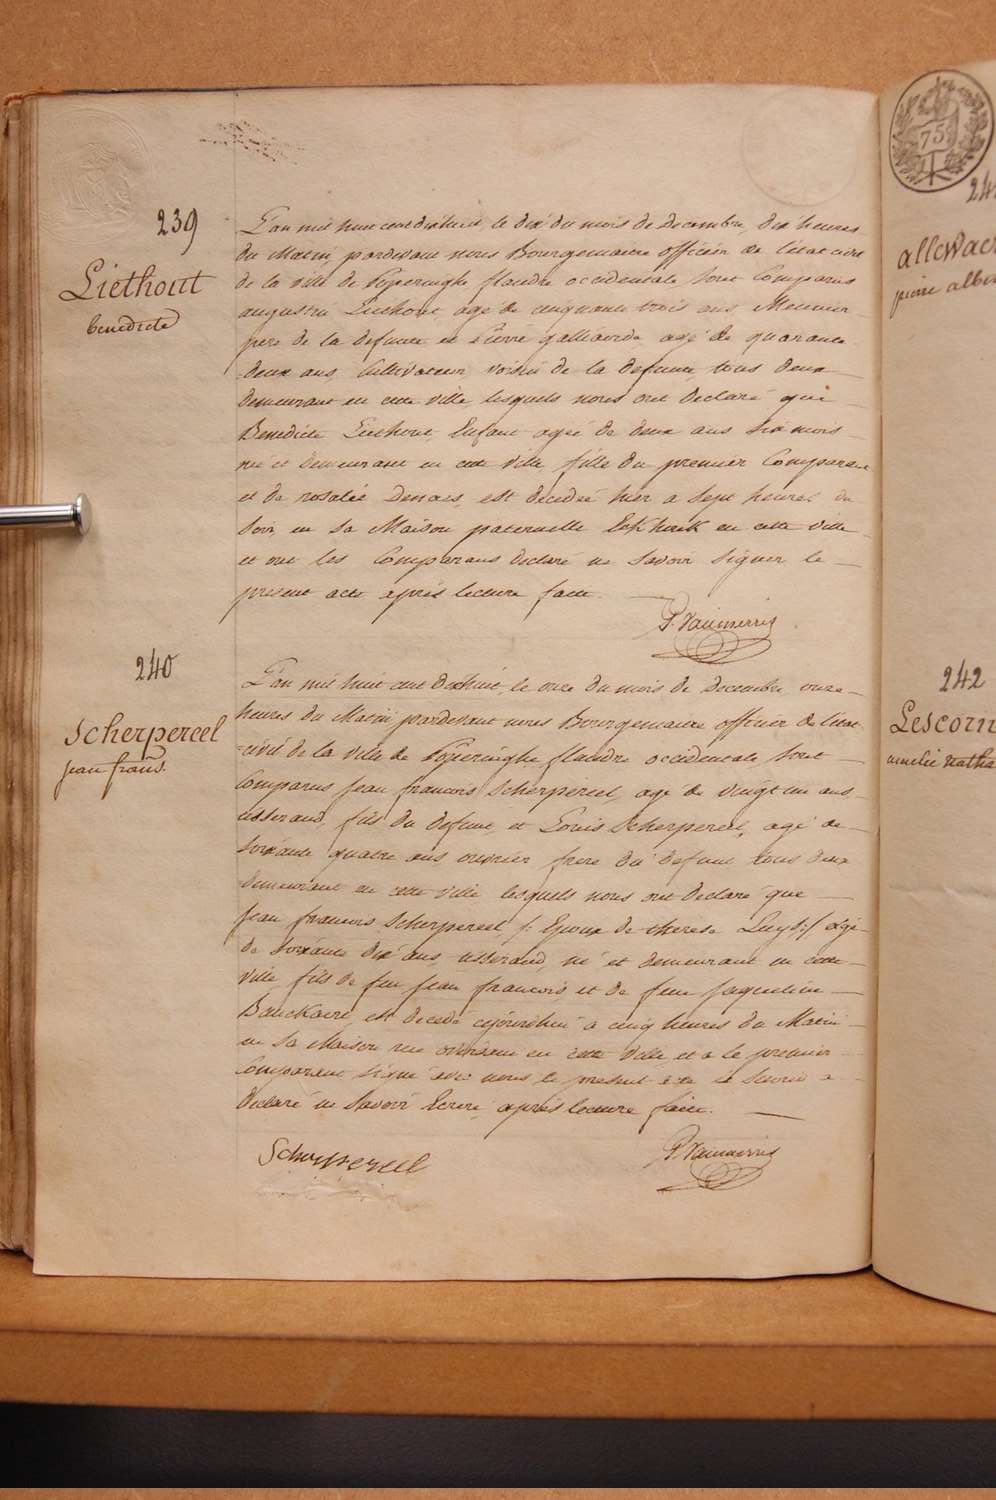 239
Liethout
benedicte
L'an mil huit cent dixhuit, le dix du mois de Decembre, dix heures
du Matin, pardevant nous Bourgemaitre officier de l'état civil
de la ville de Poperinghe flandre occidentale sont Comparus
augustin Liethout, agé de cinquante trois ans, Meunier
pere de la defunte et Pierre galliaerde, agé de quarante
deux ans, Cultivateur, voisin de la defunte, tous deux
demeurant en cette ville, lesquels nous ont declaré que
Benedicte Liethout, Enfant agée de deux ans six mois
né et demeurant en cette ville, fille du premier Comparant
et de rosalie Denaes, est decedée hier a sept heures du
soir, en sa Maison paternelle en cette ville
et ont les Comparans declaré ne Savoir signer le
present acte après lecture faite.
P. Vanmerris
240
Scherpereel
jean frans.
L'an mil huit cent dixhuit, le onze du mois de Decembre onze
heures du Matin pardevant nous Bourgemaitre officier de l'état
civil de la ville de Poperinghe flandre occidentale, sont
Comparus jean francois Scherpereel, agé de vingt un ans
tisserand, fils du defunt, et Louis Scherpereel, agé de
soixante quatre ans ouvrier frere du defunt tous deux
demeurant en cette ville lesquels nous ont declaré que
jean francois Scherpereel /: Epoux de therese Luyd :/ agé
de soixante dix ans, tisserand, né et demeurant en cette
ville, fils de feu jean francois et de feue jaqueline
Bauckaere, est decedé cejourdhui a cinq heures du Matin
en sa Maison rue en cette ville et a le premier
Comparant signé avec nous le present acte le second a
declaré ne Savoir Ecrire, après lecture faite.
Scherpereel
P. Vanmerris
75
24
allewaer
pierre albin
242
Lescorn
amelie natha